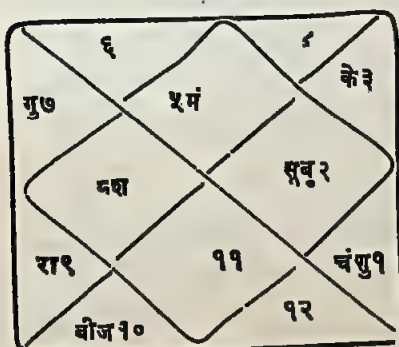 ६ ४
गु७ ५मं के३
८श सूबु२
रा९ ११ चंशु१
बीज१० १२